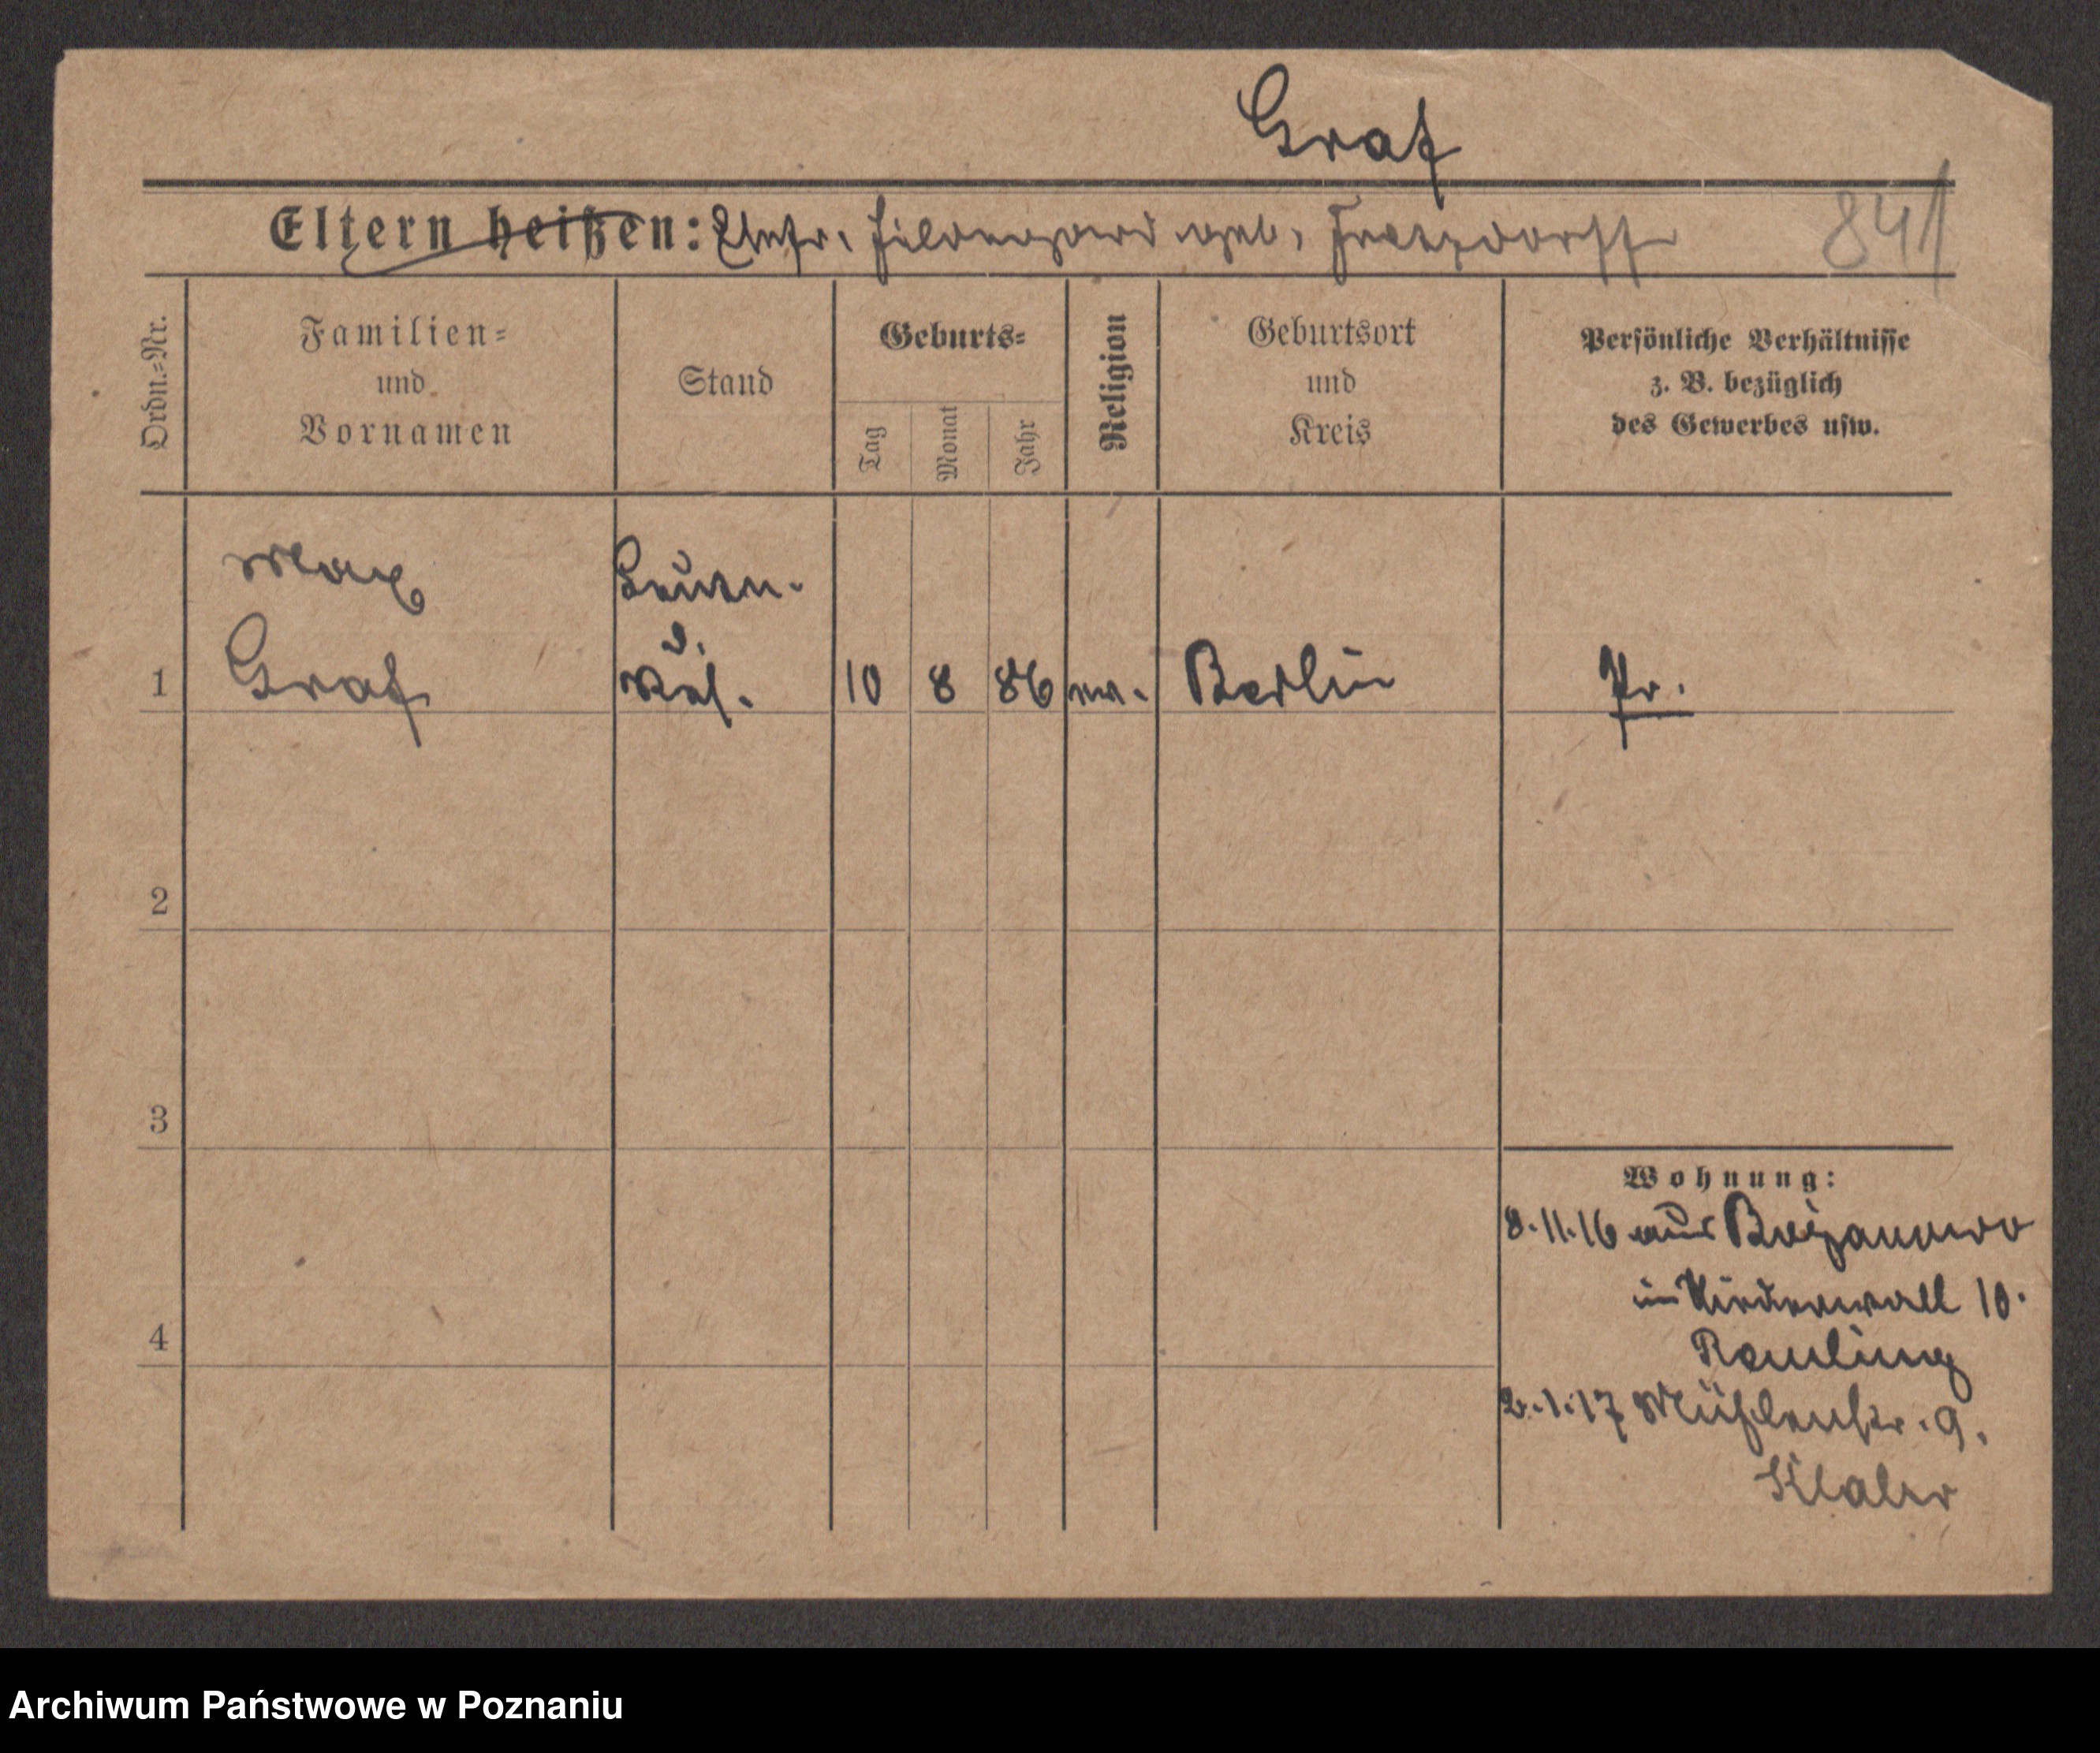 Graf
Eltern heißen: Ehefr. Hildegard geb. Fretzdorff 841
Ordn.=Nr.
Familien=
und
Vornamen
Stand
Geburts=
Tag
Monat
Jahr
Religion
Geburtsort
und
Kreis
Persönliche Verhältnisse
z. B. bezüglich
des Gewerbes usw.
Max
Leutn.
d.
1 Graf Res. 10 8 86 ev. Berlin Pr.
2
3
4
Wohnung:
8.11.16 aus Bojanowo
in Niederwall 10.
2.1.17 Mühlenstr. 9.
Archiwum Państwowe w Poznaniu